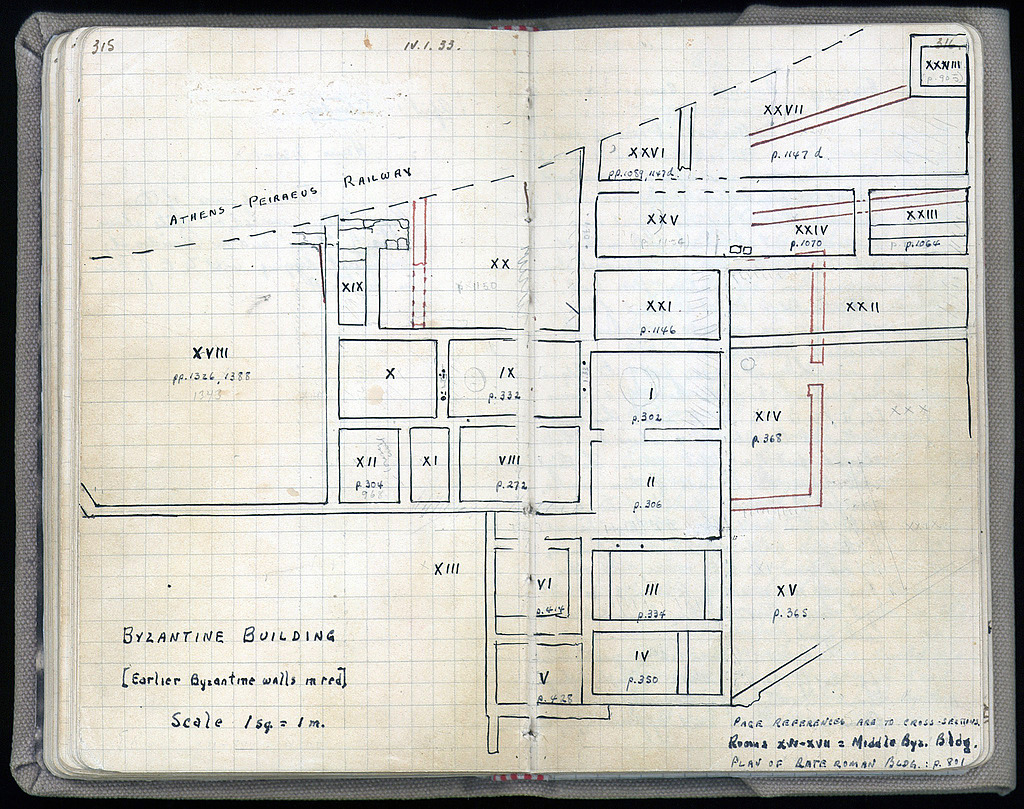 315
IV.1.33.
316
XXXVIII
XXVII
p.1147 d
XXVI
pp.1089, 1147d
ATHENS - PEIRAEUS RAILWAY
XXV
XXIV
p.1070
XXIII
p.1064
XX
p.1150
XIX
XXI
p.1146
XXII
XVIII
pp.1326, 1388
1343
X
IX
p.332
I
p.302
XIV
p.368
XXX
XII
p.304
XI
VIII
p.272
II
p.306
XIII
VI
p.414
III
p.334
XV
p.365
IV
p.350
V
p.428
BYZANTINE BUILDING
[Earlier Byzantine walls in red]
Scale 1 sq. = 1 m.
PAGE REFERENCES ARE TO CROSS-SECTIONS
Rooms XVI-XVII = Middle Byz. Bldg.
PLAN OF LATE ROMAN BLDG.: p. 801